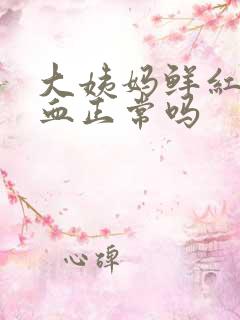 大姨妈鲜红
血正常吗
心碑